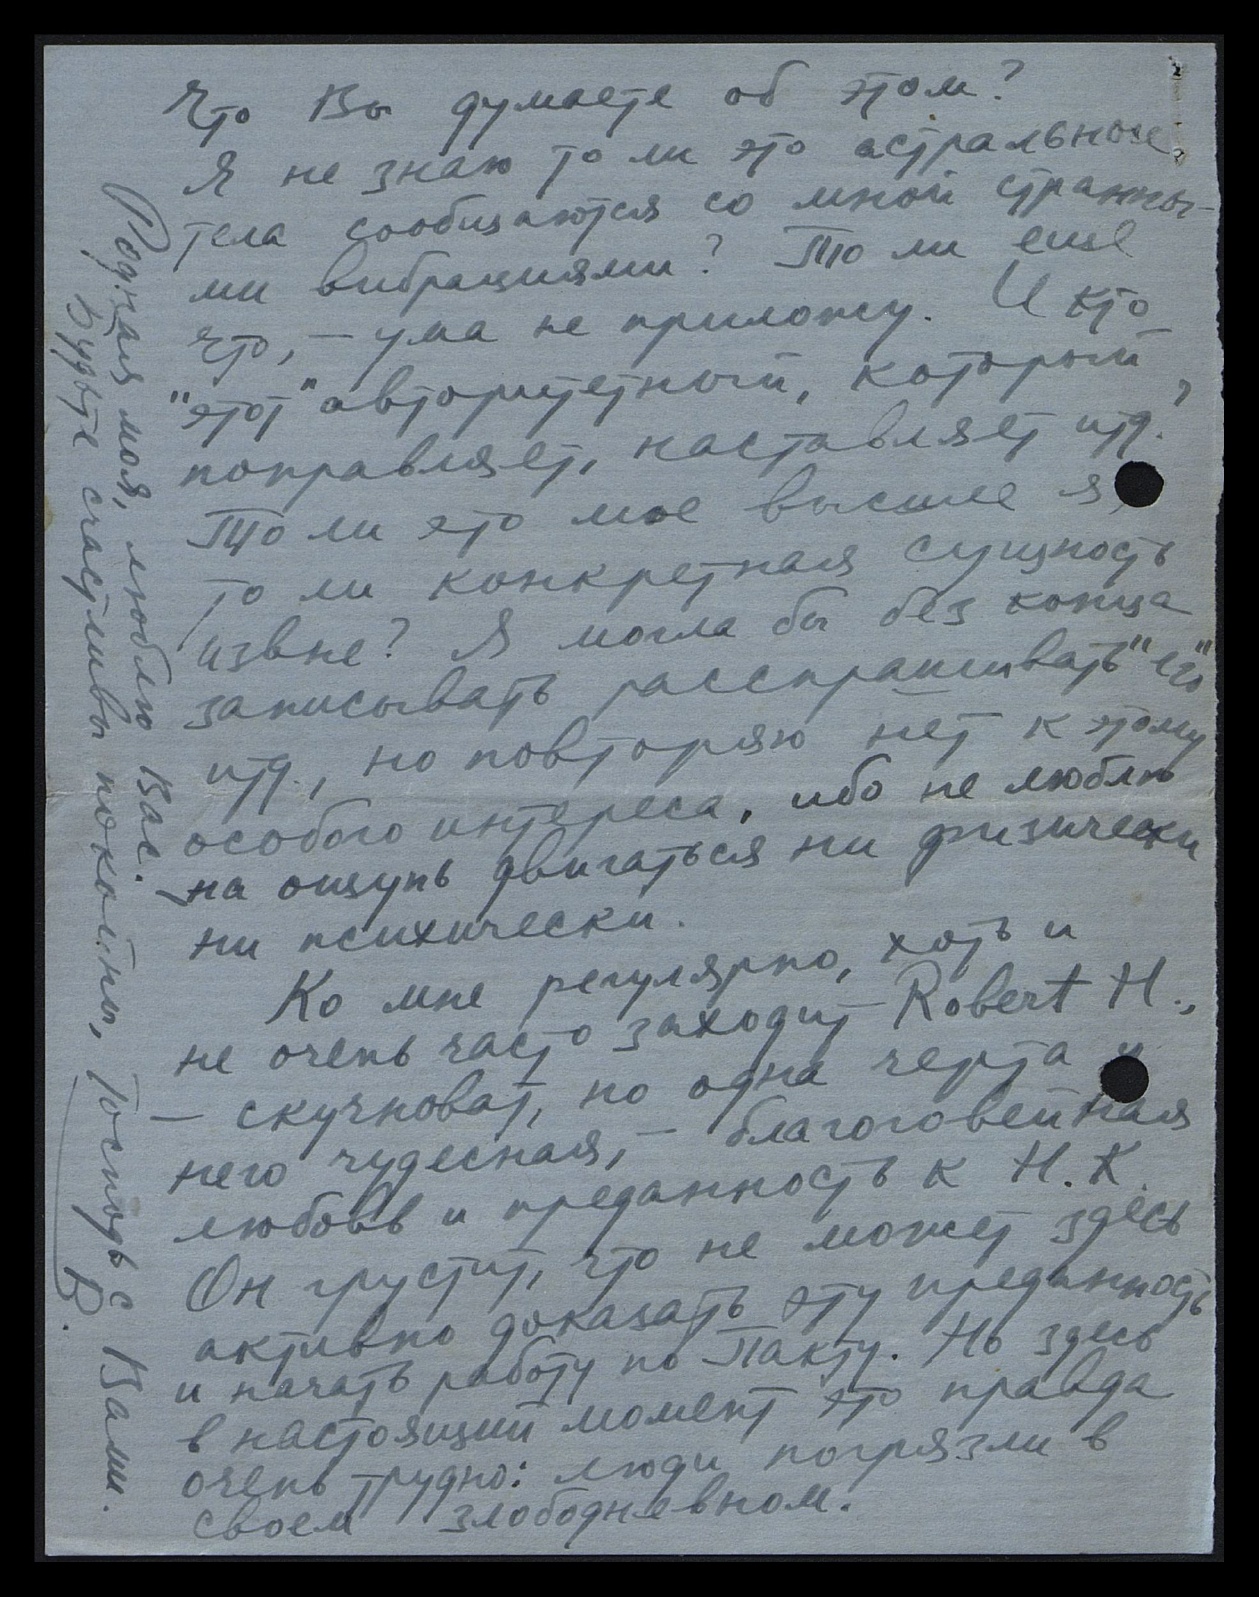 Что Вы думаете об этом?
Я не знаю то ли это астральные
тела сообщаются со мной странны-
ми вибрациями? То ли еще
что, – ума не приложу. И кто
"этот" авторитетный, который
поправляет, наставляет итд.?
То ли это мое высшее я,
то ли конкретная сущность
извне? Я могла бы без конца
записывать расспрашивать "его"
итд., но повторяю нет к этому
особого интереса, ибо не люблю
на ощупь двигаться ни физически
ни психически.
Ко мне регулярно, хоть и
не очень часто заходит Robert H.,
– скучноват, но одна черта у
него чудесная, – благоговейная
любовь и преданность к Н.К.
Он грустит, что не может здесь
активно доказать эту преданность
и начать работу по Пакту. Но здесь
в настоящий момент это правда
очень трудно: люди погрязли в
своем злободневном.
Родная моя, люблю Вас.
Будьте счастливы покойны, Господь с Вами.
В.